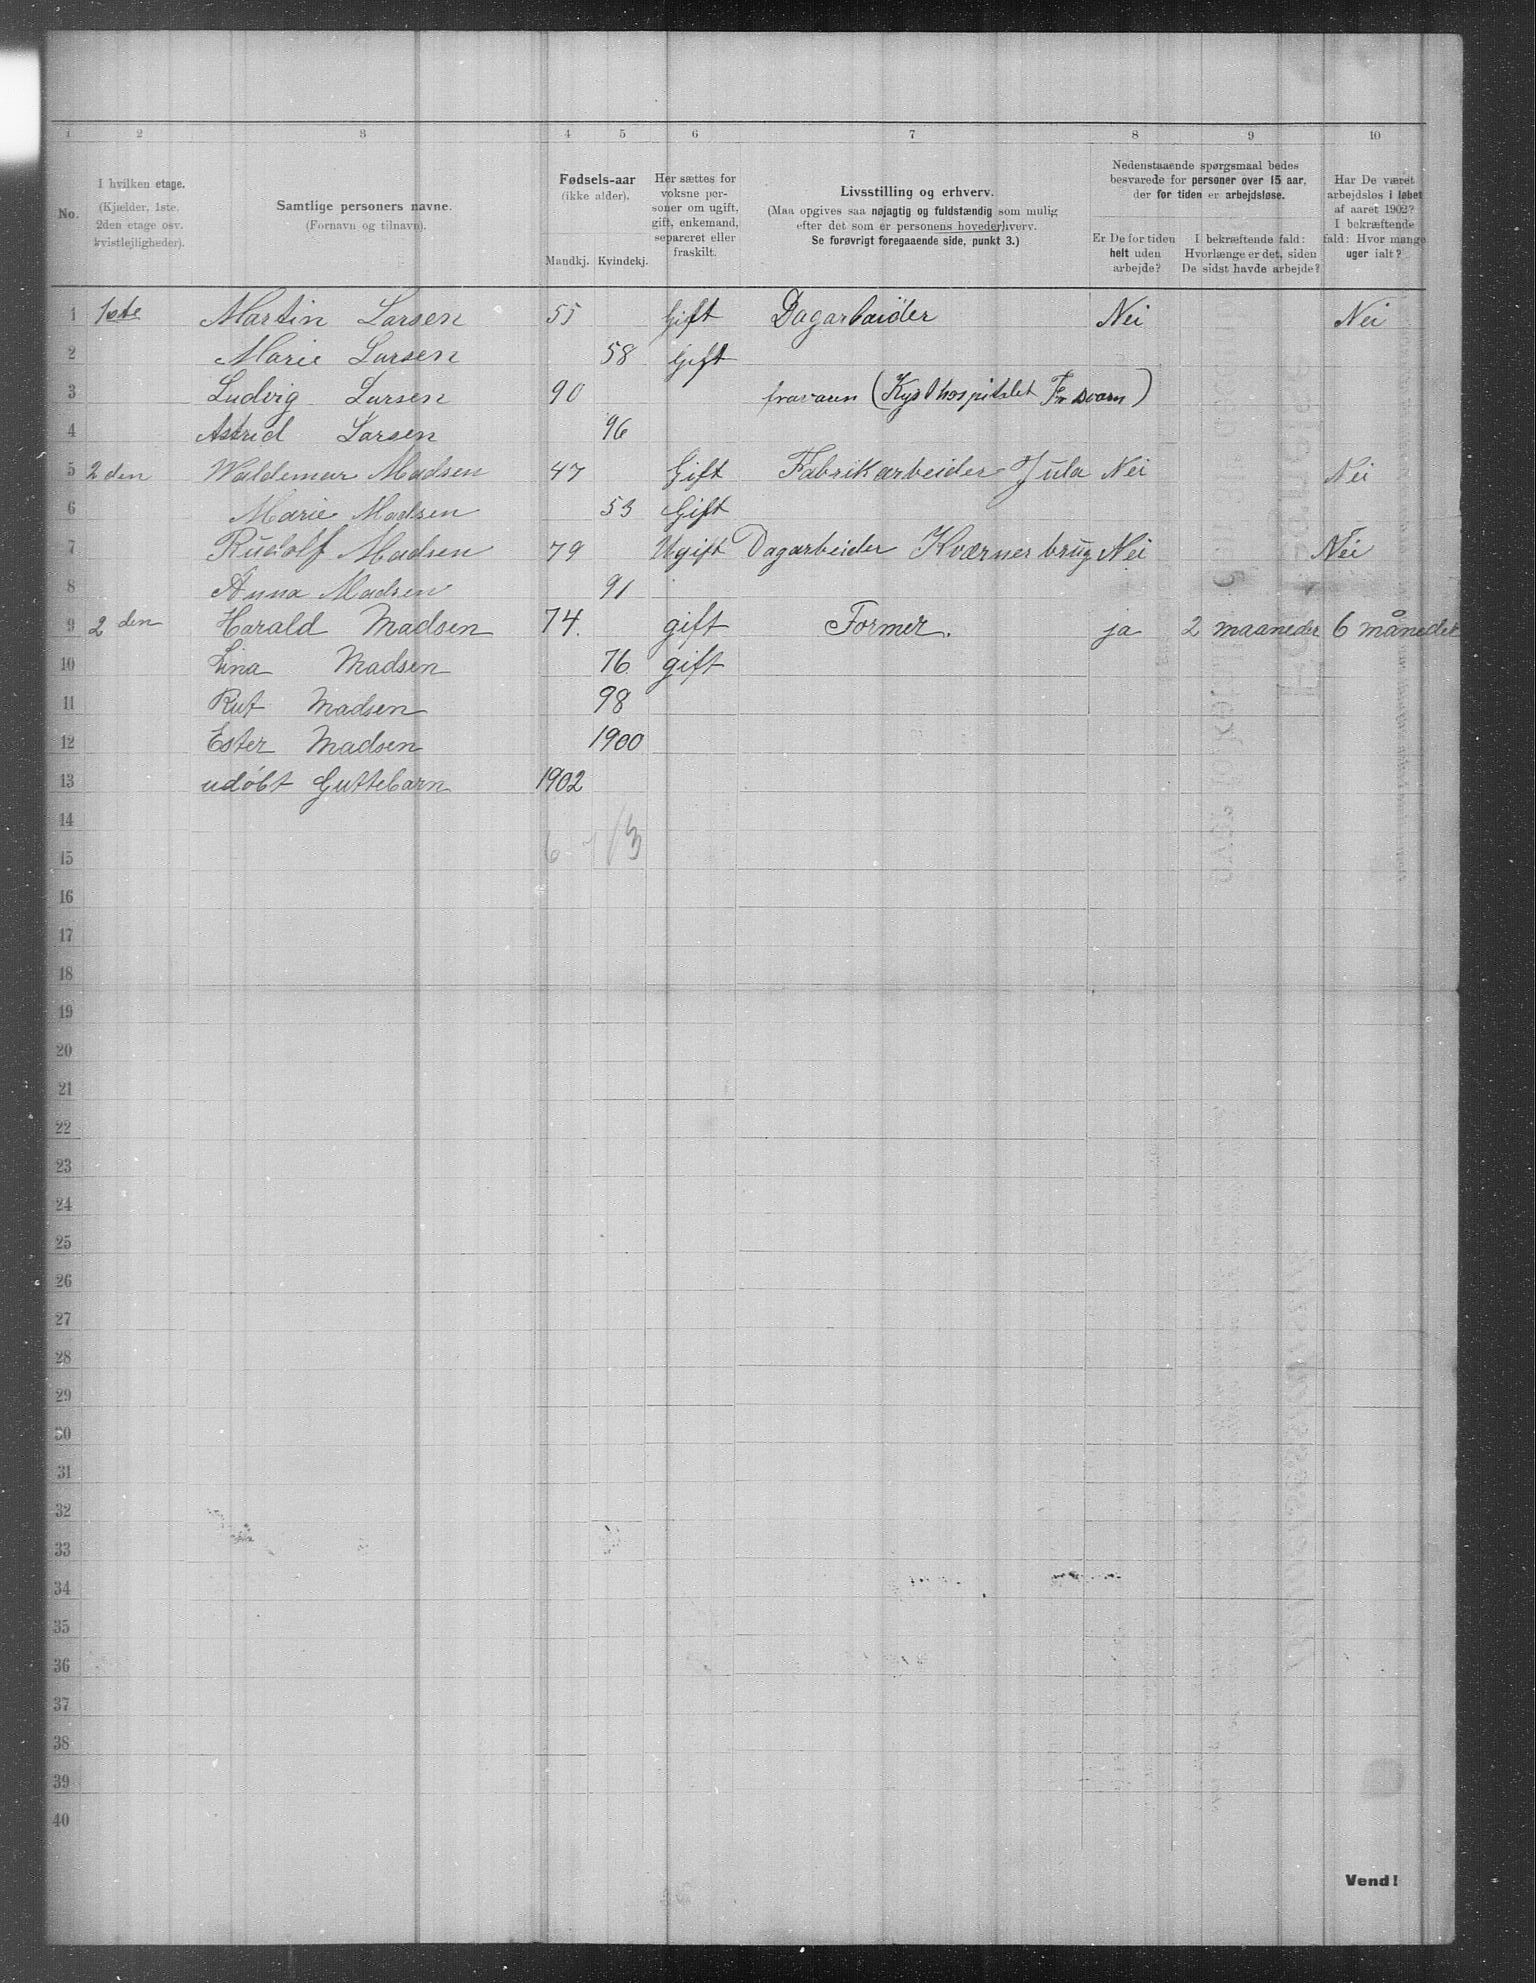 1 2 3 4 5 6 7 8 9 10
No.
I hvilken etage.
(Kjælder, 1ste.
2den etage osv.
kvistlejligheder).
Samtlige personers navne.
(Fornavn og tilnavn).
Fødsels-aar
(ikke alder).
Mandkj. Kvindekj.
Her sættes for
voksne per-
soner om ugift,
gift, enkemand,
separeret eller
fraskilt.
Livsstilling og erhverv.
(Maa opgives saa nøjagtig og fuldstændig som mulig
efter det som er personens hovederhverv.
Se forøvrigt foregaaende side, punkt 3.)
Nedenstaaende spørgsmaal bedes
besvarede for personer over 15 aar,
der for tiden er arbejdsløse.
Er De for tiden
helt uden
arbejde?
I bekræftende fald:
Hvorlænge er det, siden
De sidst havde arbejde?
Har De været
arbejdsløs i løbet
af aaret 1902?
I bekræftende
fald: Hvor mange
uger ialt?
1 1ste Martin Larsen 55 Gift Dagarbeider Nei Nei
2 Marie Larsen 58 Gift
3 Ludvig Larsen 90 (Kysthospitalet
4 Astrid Larsen 96
5 2den Waldemar Madsen 47 Gift Fabrikarbeider Jula Nei Nei
6 Marie Madsen 53 Gift
7 Rudolf Madsen 79 Ugift Dagarbeider Kværner brug Nei Nei
8 Anna Madsen 91
9 2den Harald Madsen 74. gift Former. ja 2 maaneder 6 måneder
10 Lina Madsen 76 gift
11 Rut Madsen 98
12 Ester Madsen 1900
13 udøbt Guttebarn 1902
14
15
16
17
18
19
20
21
22
23
24
25
26
27
28
29
30
31
32
33
34
35
36
37
38
39
40
Vend!